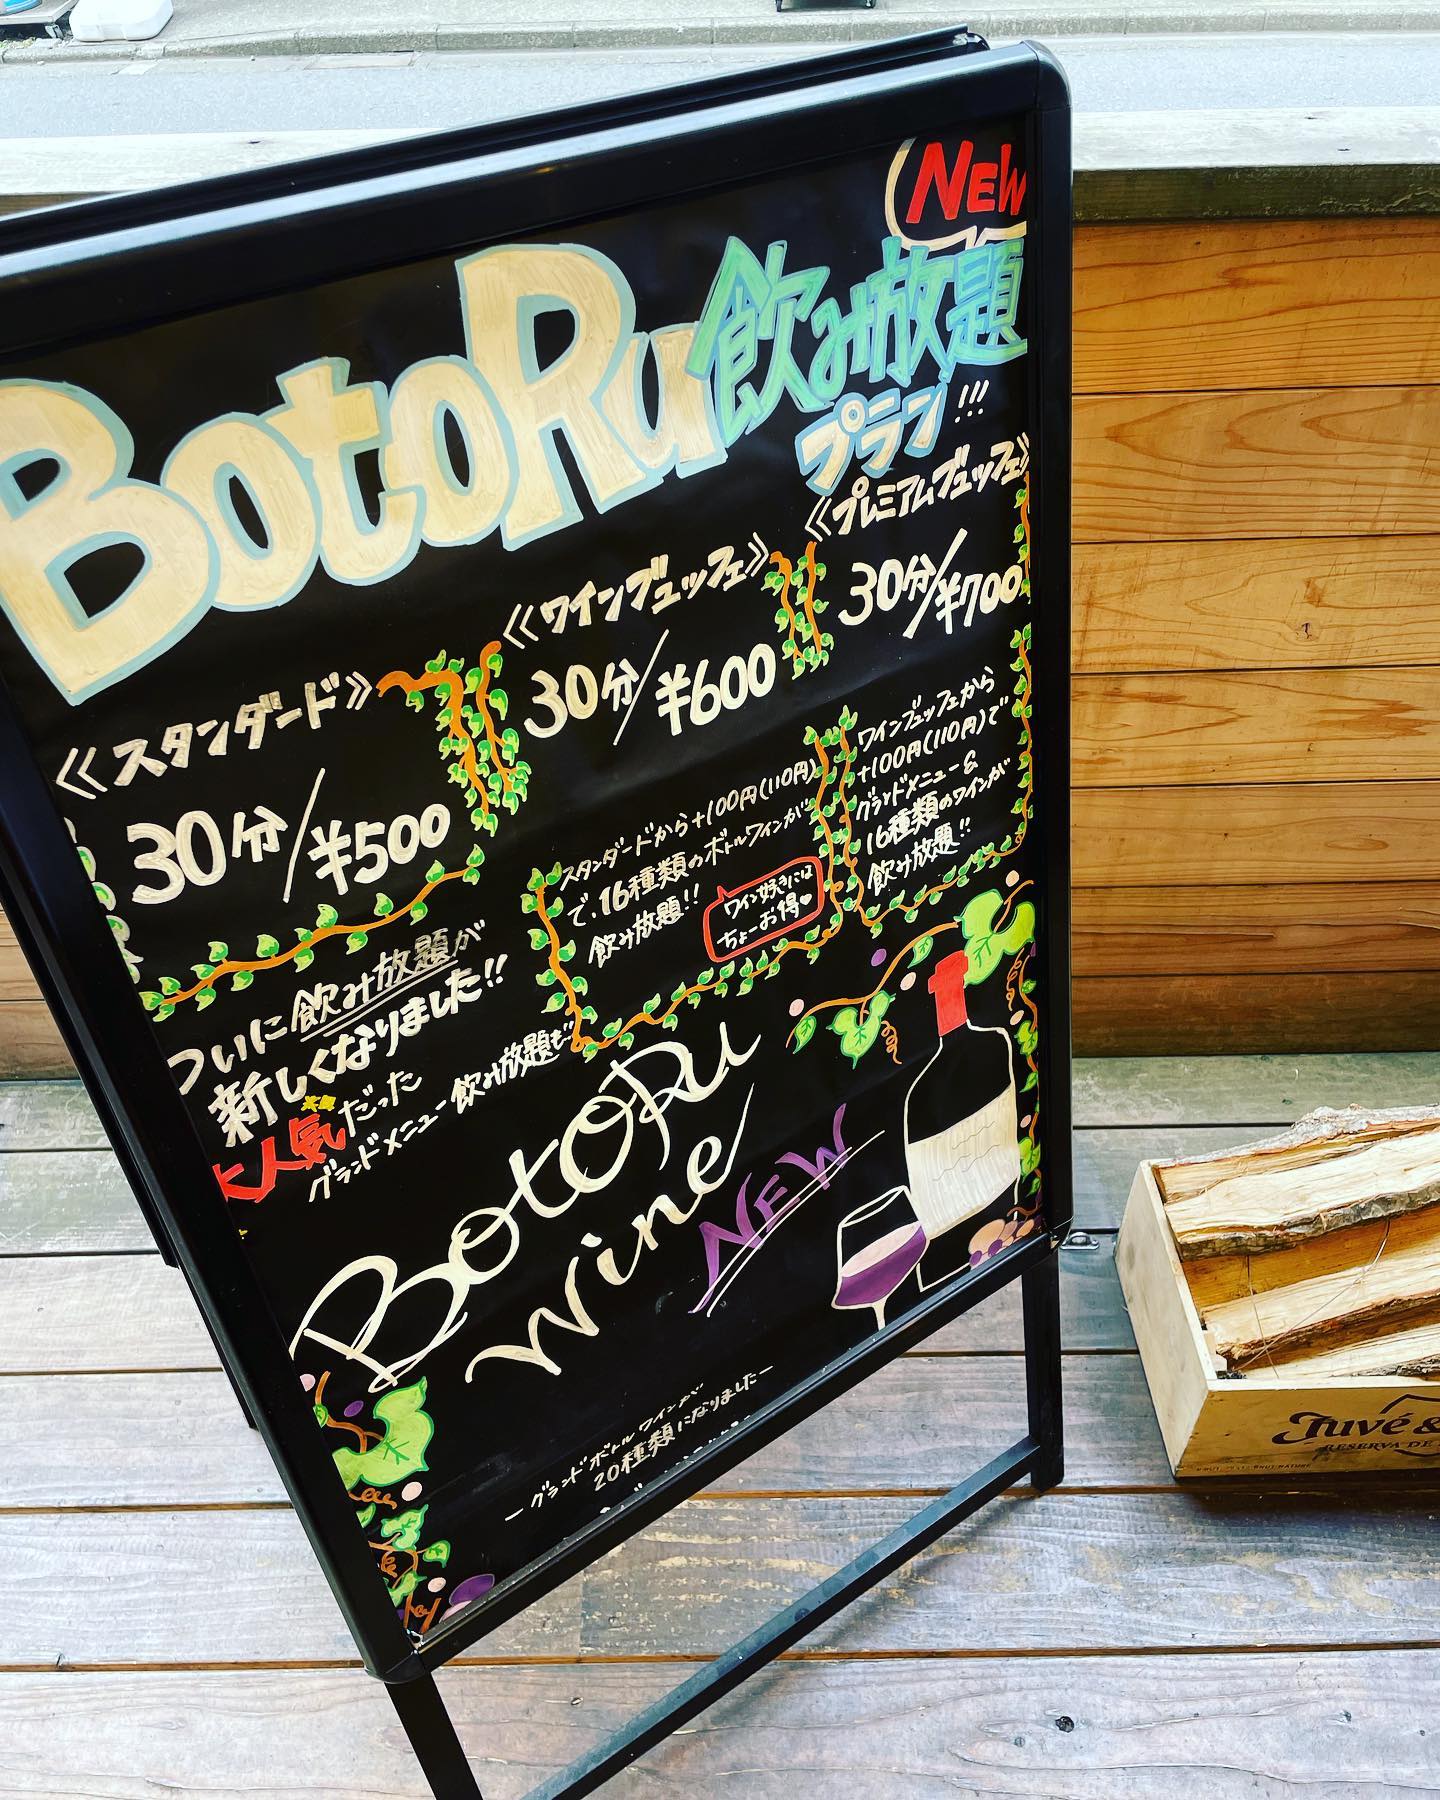 NEW
BotoRu 飲み放題
プラン!!!
≪スタンダード≫
30分/¥500
≪ワインブュッフェ≫
30分/¥600
≪プレミアムブュッフェ≫
30分/¥700
スタンダードから+100円(110円)
で、16種類のボトルワインが
飲み放題!!
ワイン好きには
ちょーお得♥
ワインブュッフェから
+100円(110円)で
グランドメニュー&
16種類のワインが
飲み放題!!
ついに飲み放題が
新しくなりました!!
大人気だった
グランドメニュー飲み放題も…
BotoRu
wine
NEW
ーグランドボトルワインが
20種類になりましたー
Juvé &
RESERVA DE